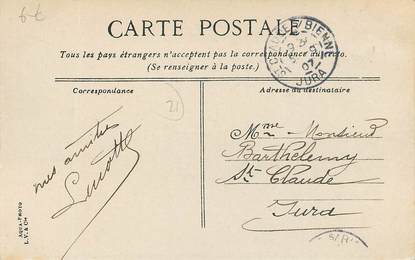 6-€
CARTE POSTALE
Tous les pays étrangers n'acceptent pas la correspondance au recto.
(Se renseigner à la poste.)
Correspondance
Adresse du destinataire
21
mes amitiés
Lucotte
Mme Monsieur
Barthelemy
St Claude
Jura
AQUA-PHOTO
L.V. & Cie
BIENNE
JURA